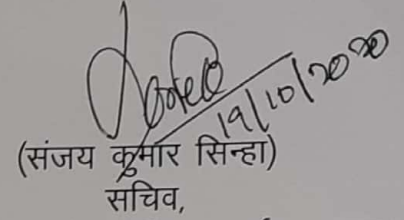 19/10/2020
(संजय कुमार सिन्हा)
सचिव,